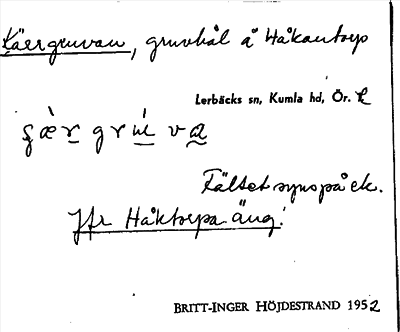 Käergruvan, gruvhål å Håkantorp
Lerbäcks sn, Kumla hd, Ör. l
Fältet syns på ek.
Jfr Håktorpa äng!
BRITT-INGER HÖJDESTRAND 1952